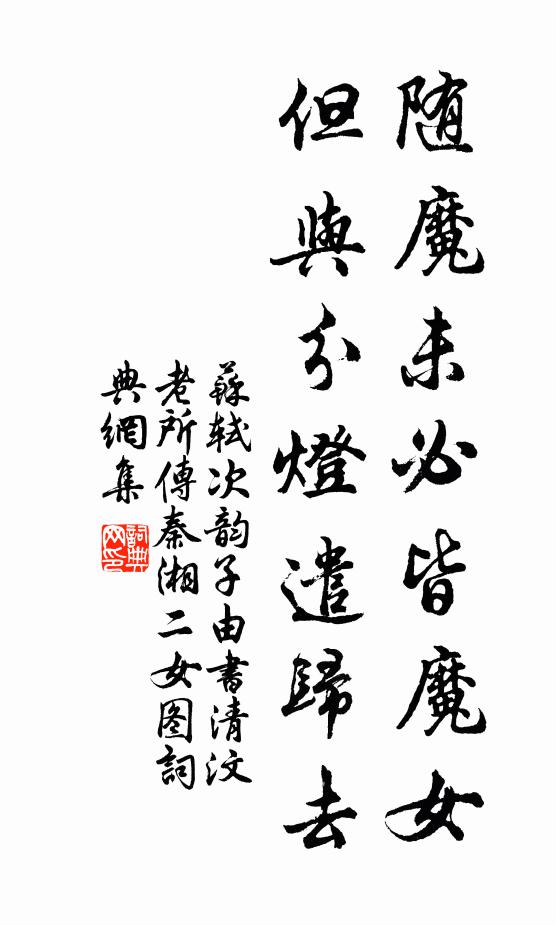 随魔未必皆魔女
但與分燈遣歸去
蘇軾次韵子由書清汶
老所傳秦湘二女图詞
典網集
詞典網印